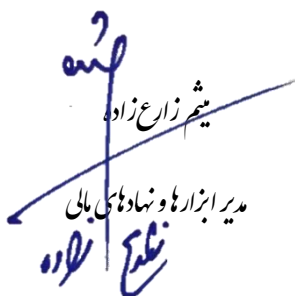 میثم زارع‌زاده
مدیر ابزارها و نهادهای مالی